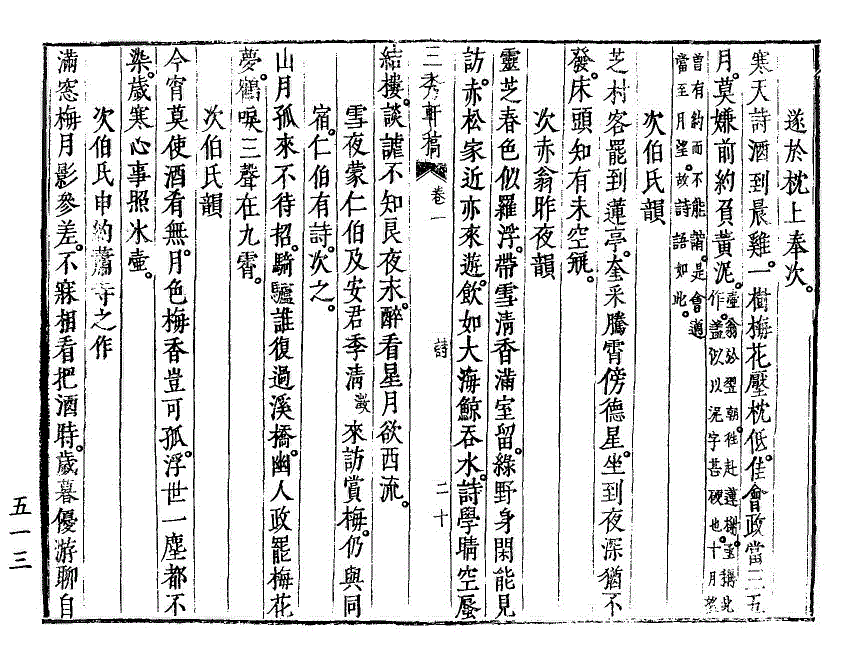 遂於枕上奉次。
寒天詩酒到晨雞。一樹梅花壓枕低。佳會政當三五
月。莫嫌前約負黃泥。
壺翁於翌朝徃赴蓮榭。至攜此
作。盖似以泥字甚硬也。十月望
曾有約而不能諧。是會適
當至月望。故詩語如此。
次伯氏韻
芝村客罷到蓮亭。奎采騰霄傍德星。坐到夜深猶不
發。床頭知有未空甁。
次赤翁昨夜韻
靈芝春色似羅浮。帶雪清香滿室留。綠野身閑能見
訪。赤松家近亦來遊。飮如大海鯨吞水。詩學晴空蜃
三秀軒稿 卷一 詩 二十
結樓。談謔不知良夜末。醉看星月欲西流。
雪夜蒙仁伯及安君季清 㵓 來訪賞梅。仍與同
宿。仁伯有詩。次之。
山月孤來不待招。騎驢誰復過溪橋。幽人政罷梅花
夢。鶴唳三聲在九霄。
次伯氏韻
今宵莫使酒肴無。月色梅香豈可孤。浮世一塵都不
染。歲寒心事照氷壺。
次伯氏申約蕭寺之作
滿窓梅月影參差。不寐相看把酒時。歲暮優游聊自
五一三